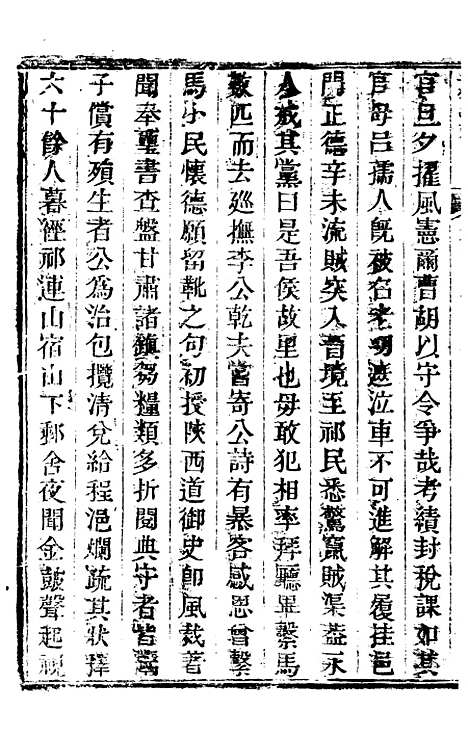 官旦夕擢風憲爾曹胡以守令爭哉考績封稅課如其
官母呂孺人旣被召老明遮泣車不可進解其履挂邑
門正德辛未流賊突入晉境至祁民悉驚竄賊渠孟永
人戒其黨曰是吾侯故里也毋敢犯相率拜廳畢繫馬
數匹而去巡撫李公乾夫嘗寄公詩有暴客感恩曾繫
馬小民懷德願留靴之句初授陝西道御史卽風裁著
聞奉璽書查盤甘肅諸鎭芻糧類多折閱典守者皆鬻
子償有殞生者公爲治包攬清兌給程浥爛疏其狀釋
六十餘人暮徑祁連山宿山下郵舍夜聞金鼓聲起視